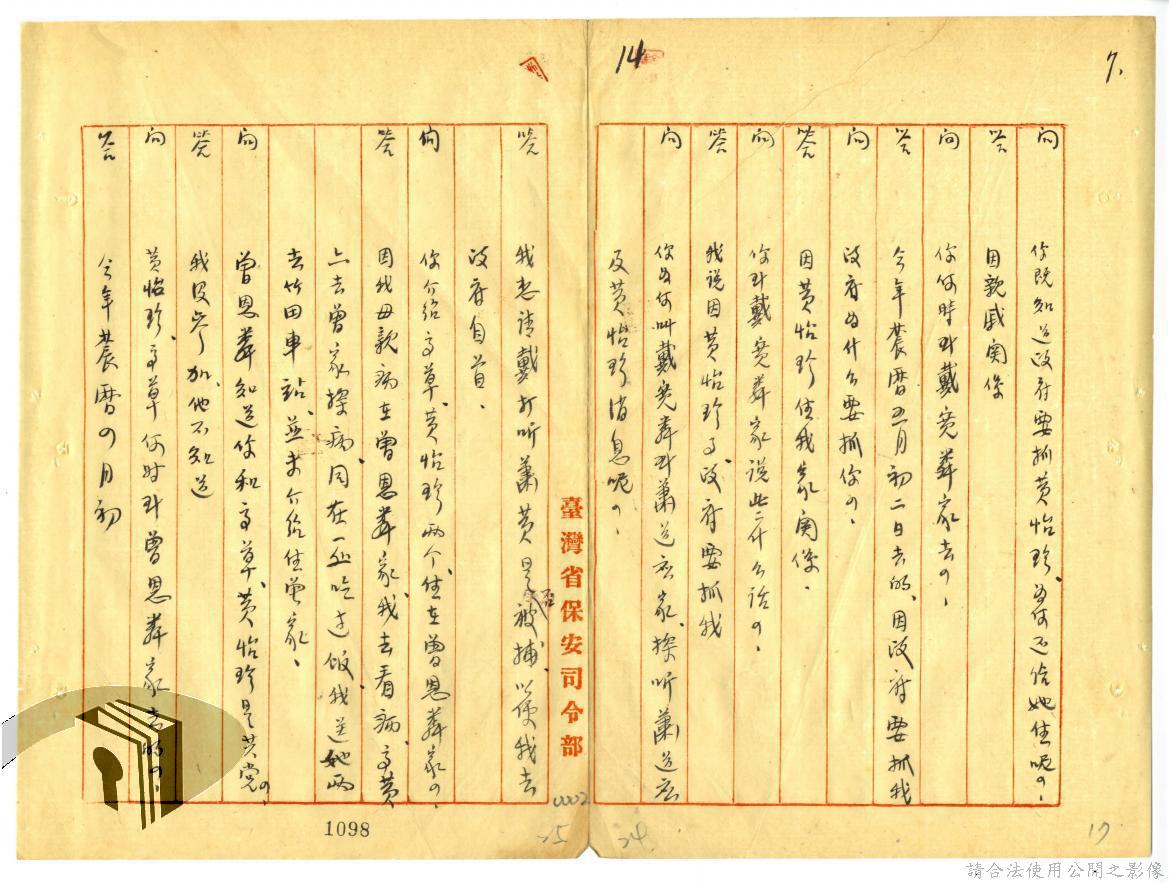 14
7.
問 你既知道政府要抓黃怡珍、為何还给她住呢？
答 因親戚関係
問 你何時到戴寬葬家去？
答 今年農曆五月初二日去的、因政府要抓我
問 政府為什么要抓你？
答 因黃怡珍住我家関係、
問 你到戴寬葬家說些什么话？
答 我說因黃怡珍了、政府要抓我
問 你為何叫戴寬葬到蕭道应家、探听蕭道应
及黃怡珍消息呢？
臺灣省保安司令部
答 我想請戴打听蕭黃是否被捕、以便我去
政府自首、
問 你介給高草、黃怡珍两个、住在曾恩葬家？
答 因我母親病在曾恩葬家、我去看病、高黃
亠去曾家探病、同在一起吃过飯、我送她两
去竹田車站、並未介給住曾家、
問 曾恩葬知道你和高草、黃怡珍是共党？
答 我没參加、他不知道
問 黃怡珍、高草何时到曾恩葬家去的？
答 今年農曆四月初
1098
0002
25
24
17
請合法使用公開之影像